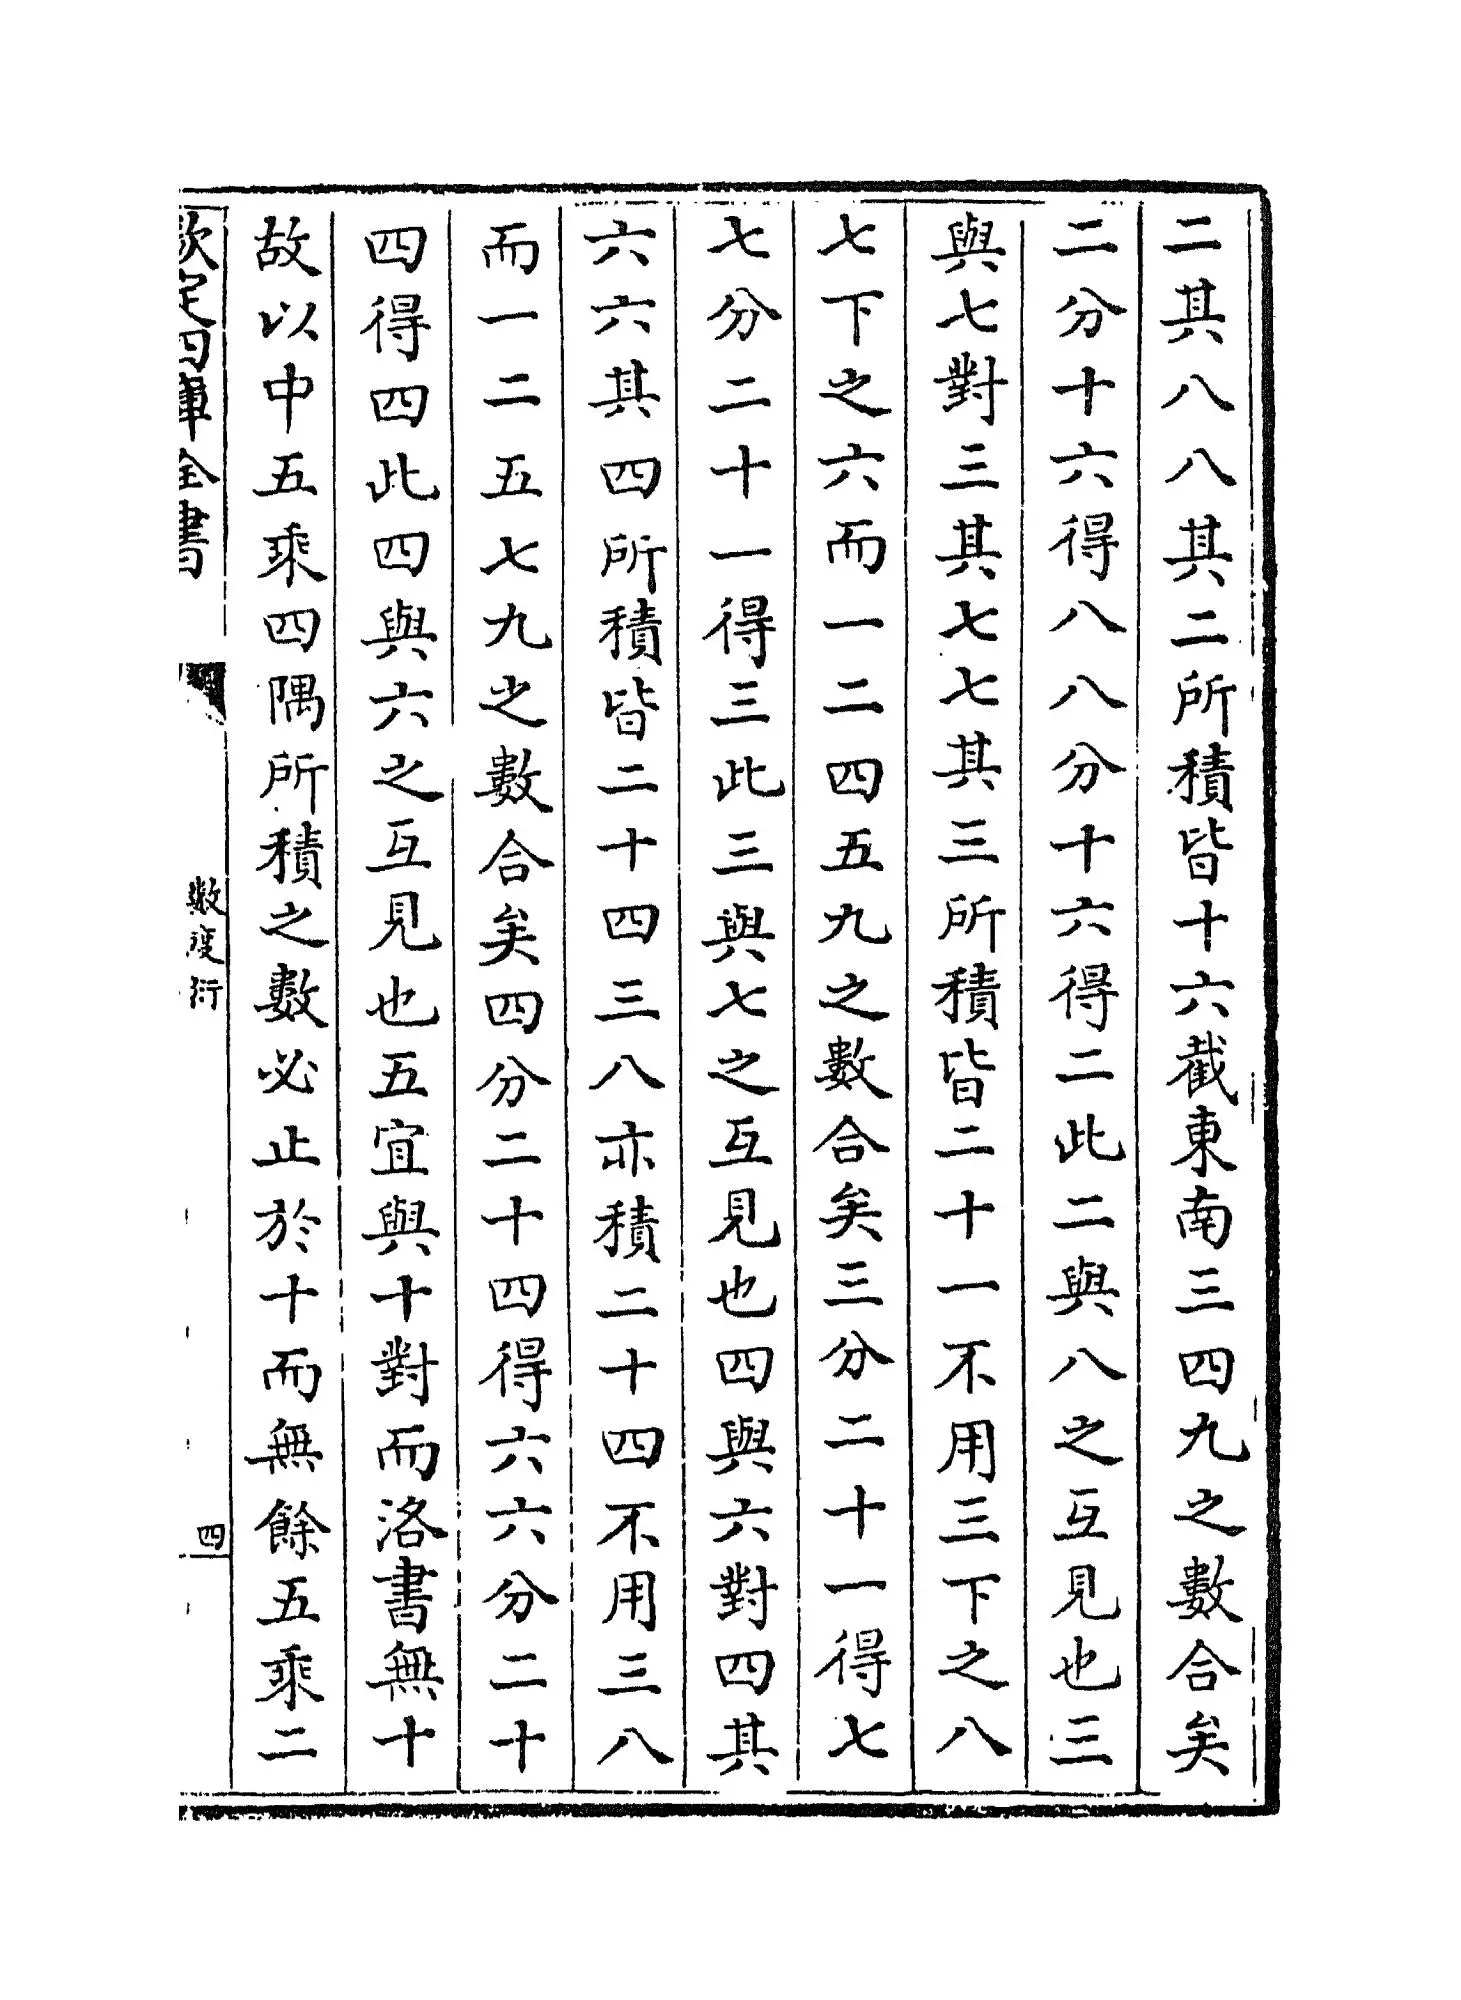 二其八八其二所積皆十六截東南三四九之數合矣
二分十六得八八分十六得二此二與八之互見也三
與七對三其七七其三所積皆二十一不用三下之八
七下之六而一二四五九之數合矣三分二十一得七
七分二十一得三此三與七之互見也四與六對四其
六六其四所積皆二十四三八亦積二十四不用三八
而一二五七九之數合矣四分二十四得六六分二十
四得四此四與六之互見也五宜與十對而洛書無十
故以中五乘四隅所積之數必止於十而無餘五乘二
欽定四庫全書
數度衍
四